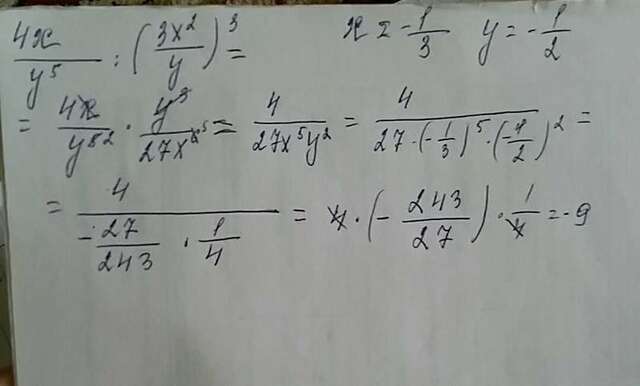 4x/y⁵ : (3x²/y)³ = x = -1/3 y = -1/2
= 4x/y⁵² · y³/27x⁶⁵ = 4/27x⁵y² = 4/27·(-1/3)⁵·(1/2)² =
= 4/-27/243 · 1/4 = 4·(-243/27)·1/4 = -9